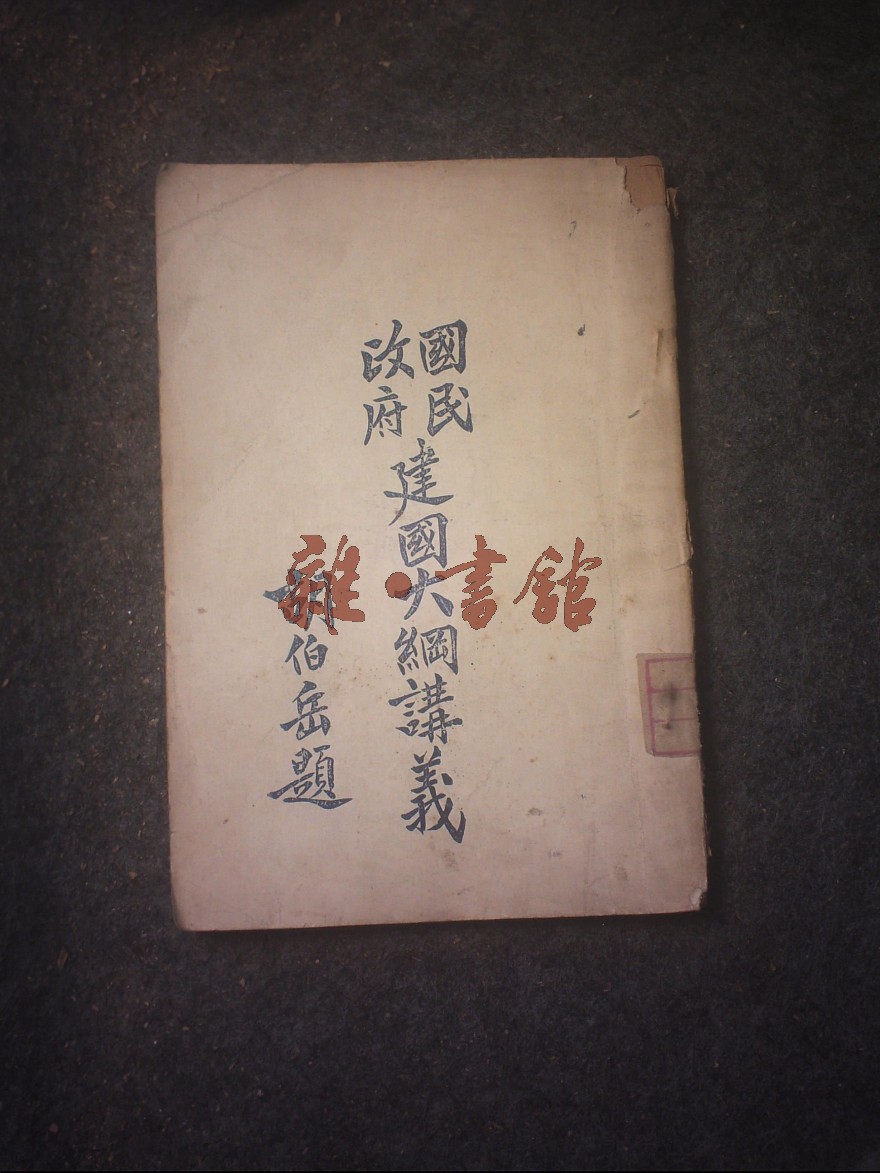 國民
政府
建國大綱講義
胡伯岳題
雜·書館